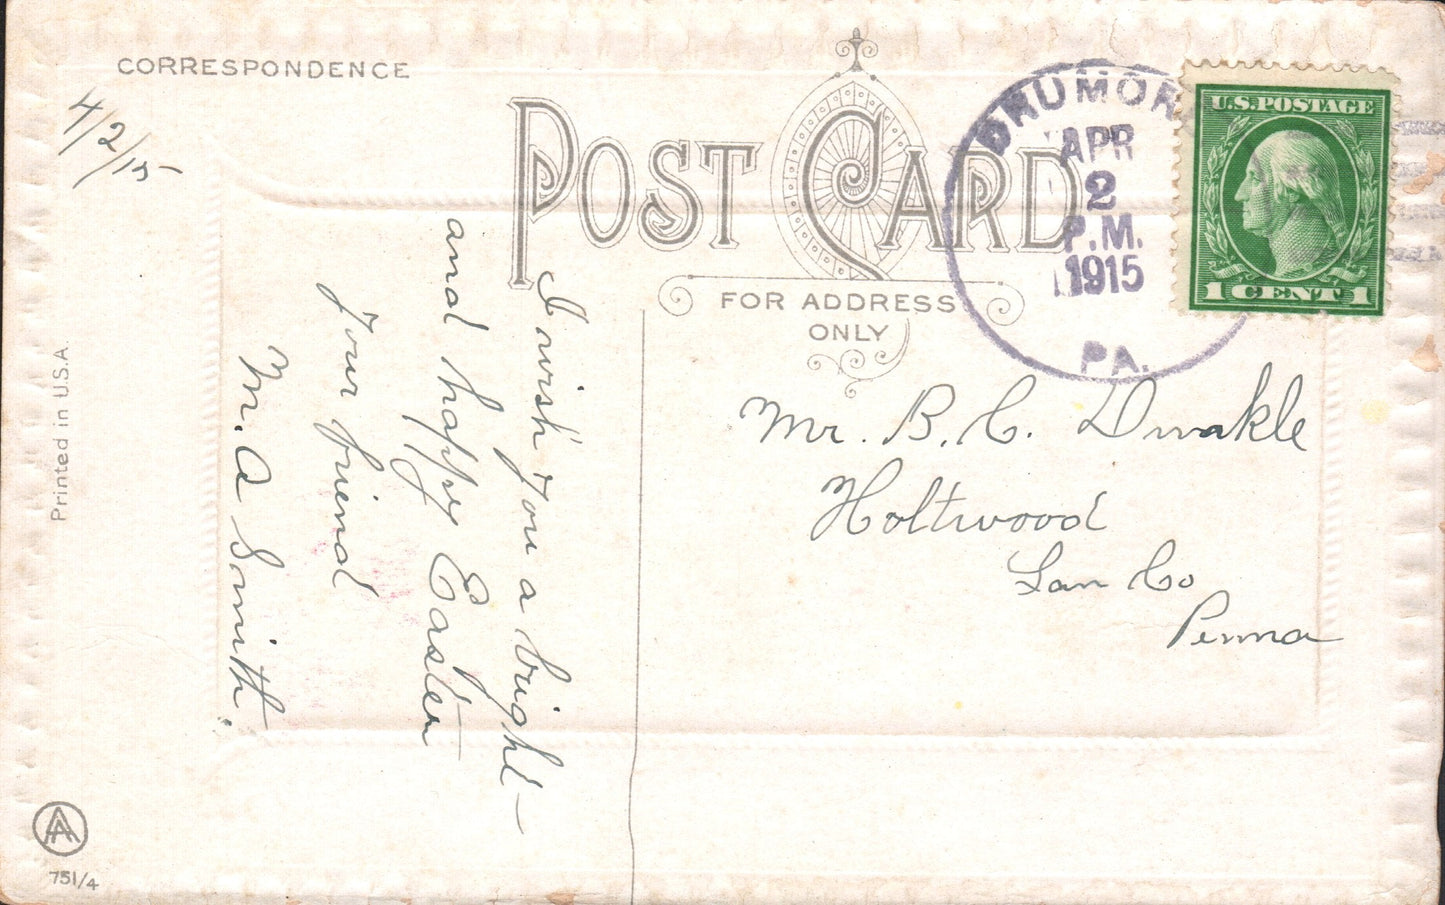 CORRESPONDENCE
4/2/15
I wish you a bright
and happy Easter
your friend
M. A Smith.
POST CARD
FOR ADDRESS
ONLY
DRUMOR
APR
2
P.M.
1915
PA.
U.S. POSTAGE
1 CENT 1
Mr. B. C.
Holtwood
Lan Co
Penna
Printed in U.S.A.
AA
751/4